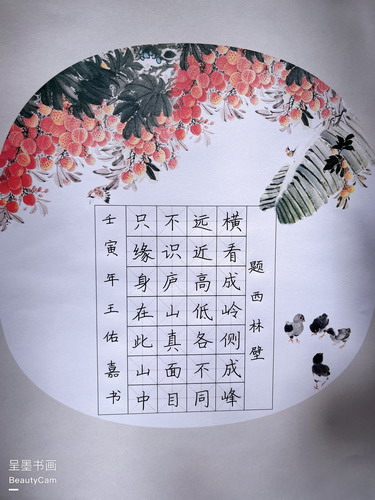 题西林壁
横看成岭侧成峰
远近高低各不同
不识庐山真面目
只缘身在此山中
壬寅年王佑嘉书
呈墨书画
BeautyCam